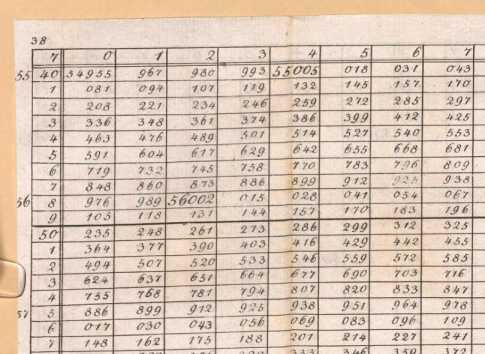 38
η 0 1 2 3 4 5 6 7
55 40 34955 967 980 993 55005 018 031 043
1 081 094 107 119 132 145 157 170
2 208 221 234 246 259 272 285 297
3 336 348 361 374 386 399 412 425
4 463 476 489 501 514 527 540 553
5 591 604 617 629 642 655 668 681
6 719 732 745 758 770 783 796 809
7 848 860 873 886 899 912 925 938
56 8 976 989 56002 015 028 041 054 067
9 105 118 131 144 157 170 183 196
50 235 248 261 273 286 299 312 325
1 364 377 390 403 416 429 442 455
2 494 507 520 533 546 559 572 585
3 624 637 651 664 677 690 703 716
4 755 768 781 794 807 820 833 847
57 5 886 899 912 925 938 951 964 978
6 017 030 043 056 069 083 096 109
7 148 162 175 188 201 214 227 241
333 346 359 372